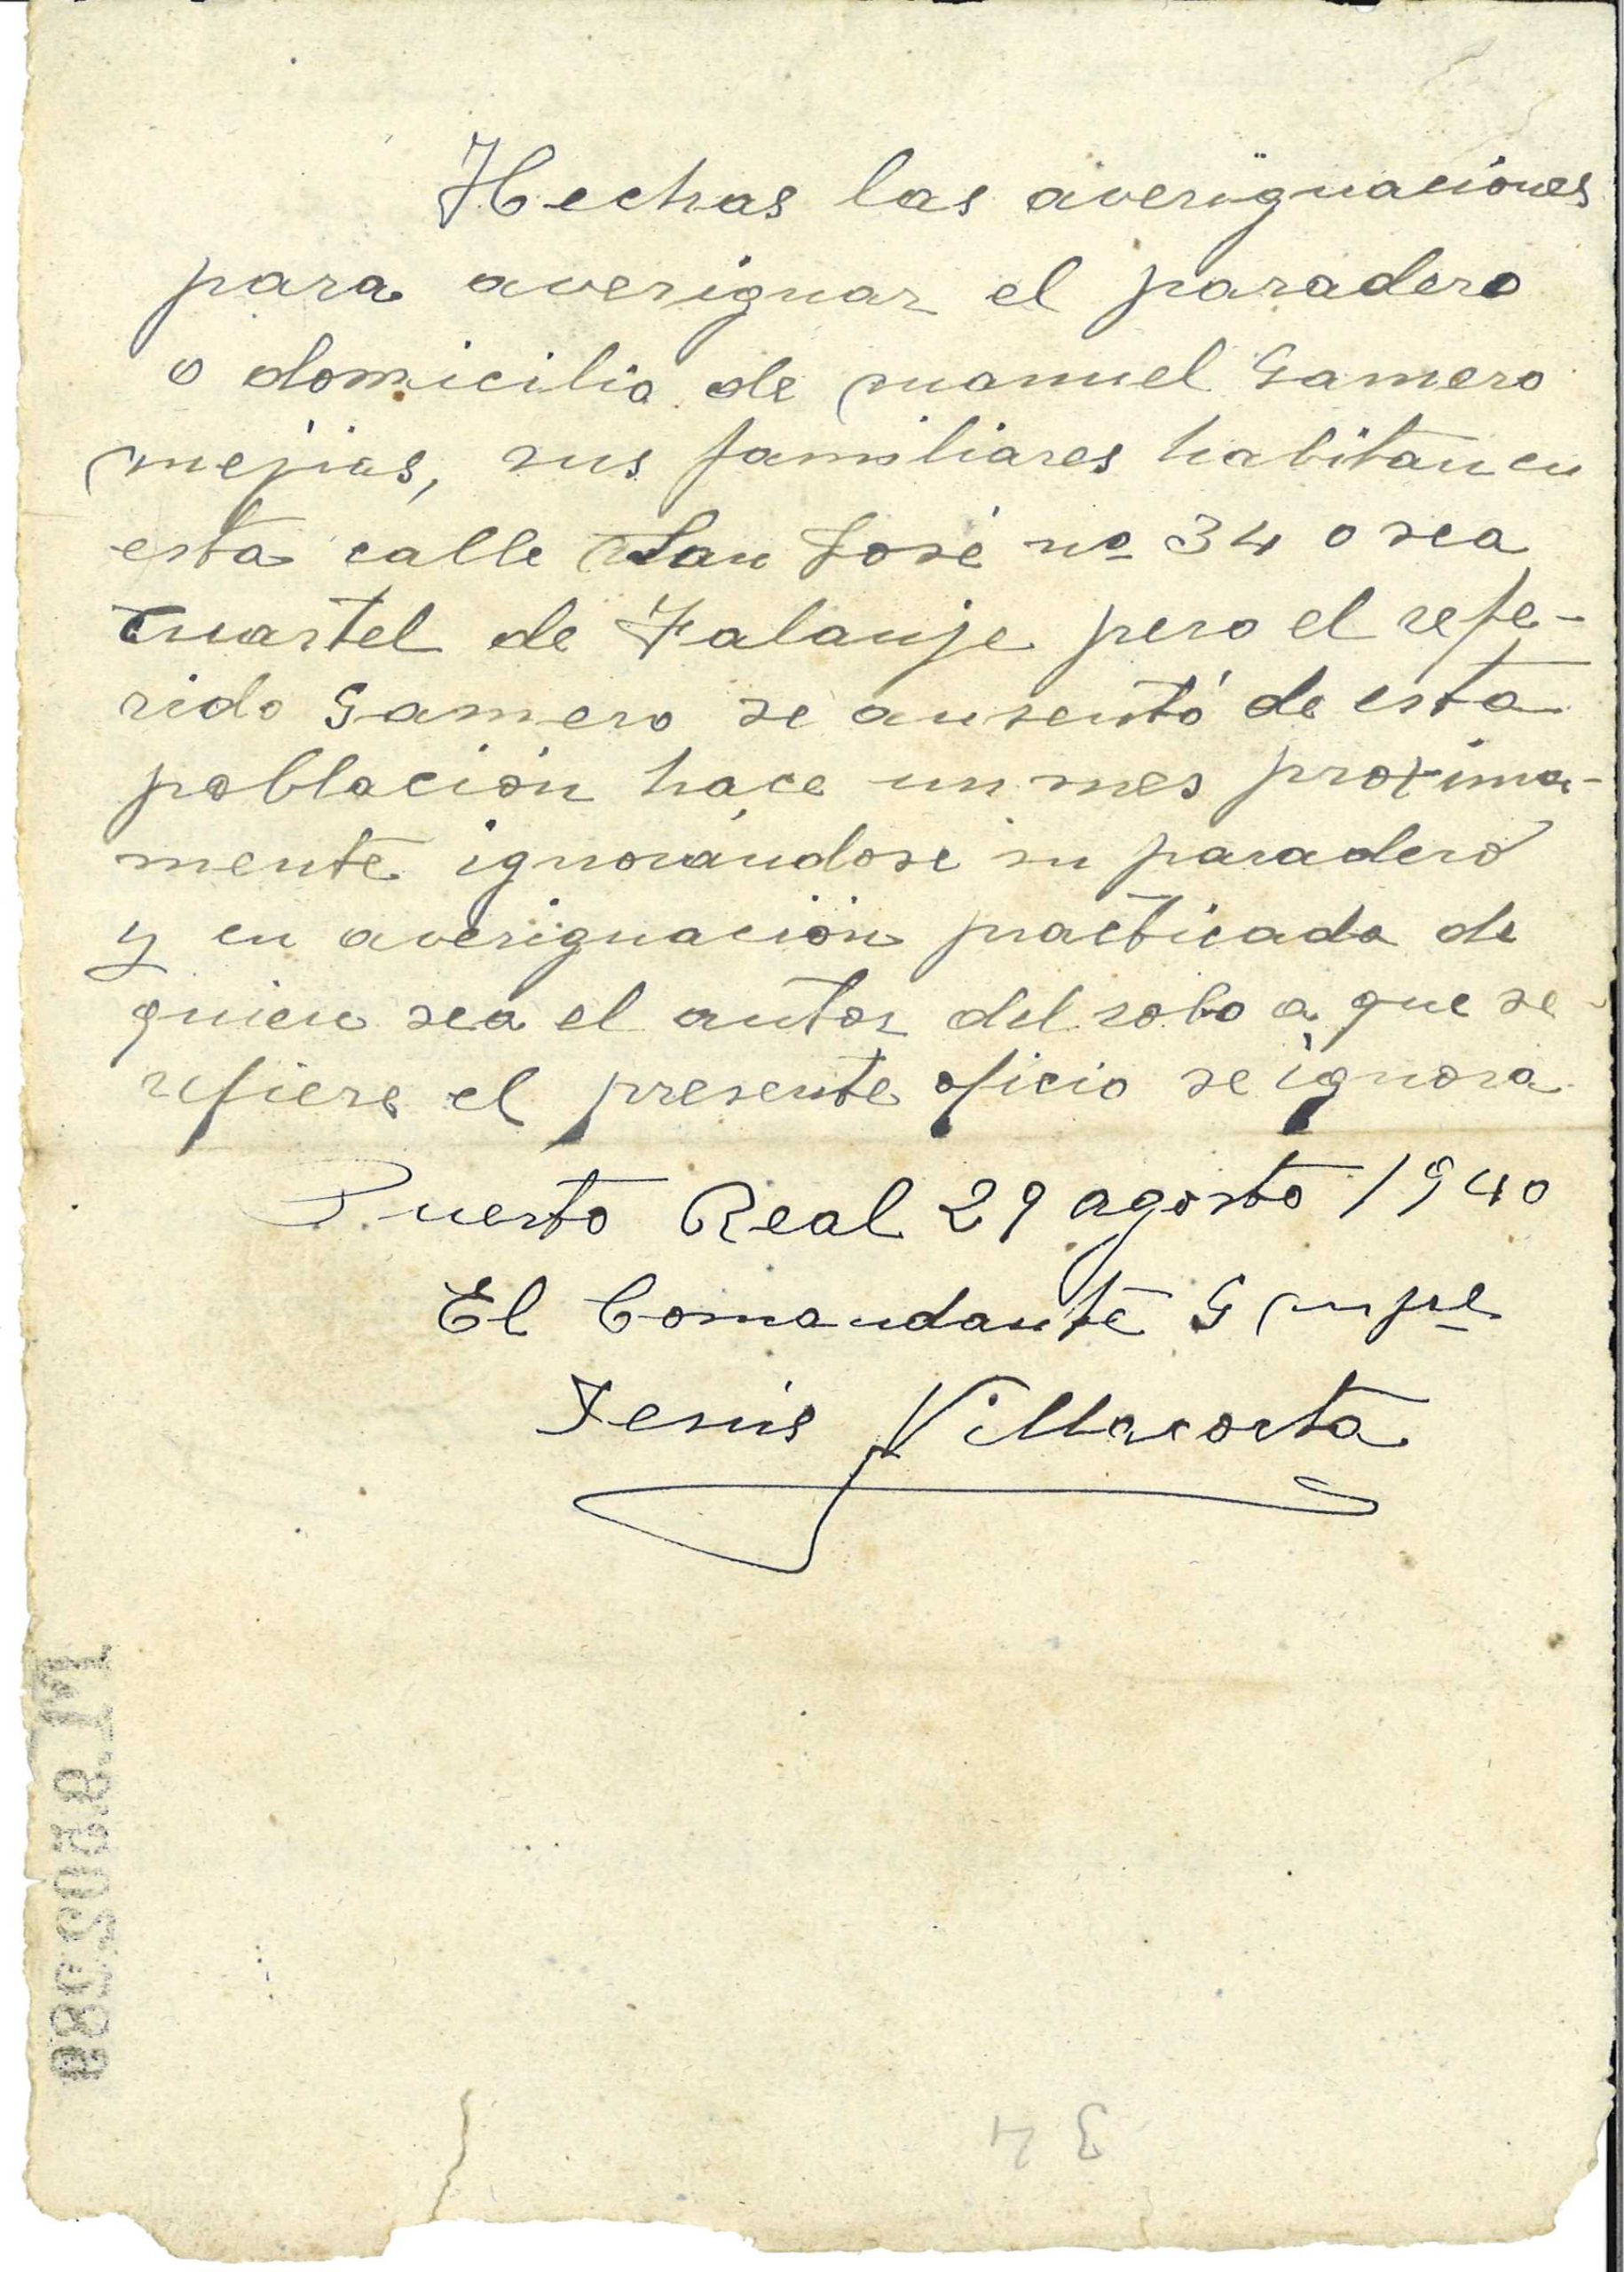 Hechas las averiguaciones
para averiguar el paradero
o domicilio de manuel Gamero
mejias, sus familiares habitan en
esta calle San José nº 34 o sea
Cuartel de Falanje pero el refe-
rido Gamero se ausentó de esta
población hace un mes proxima-
mente ignorándose su paradero
y en averiguación practicada de
quien sea el autor del robo a que se
refiere el presente oficio se ignora
Puerto Real 29 agosto 1940
El Comandante
Jesús Villacorta
34